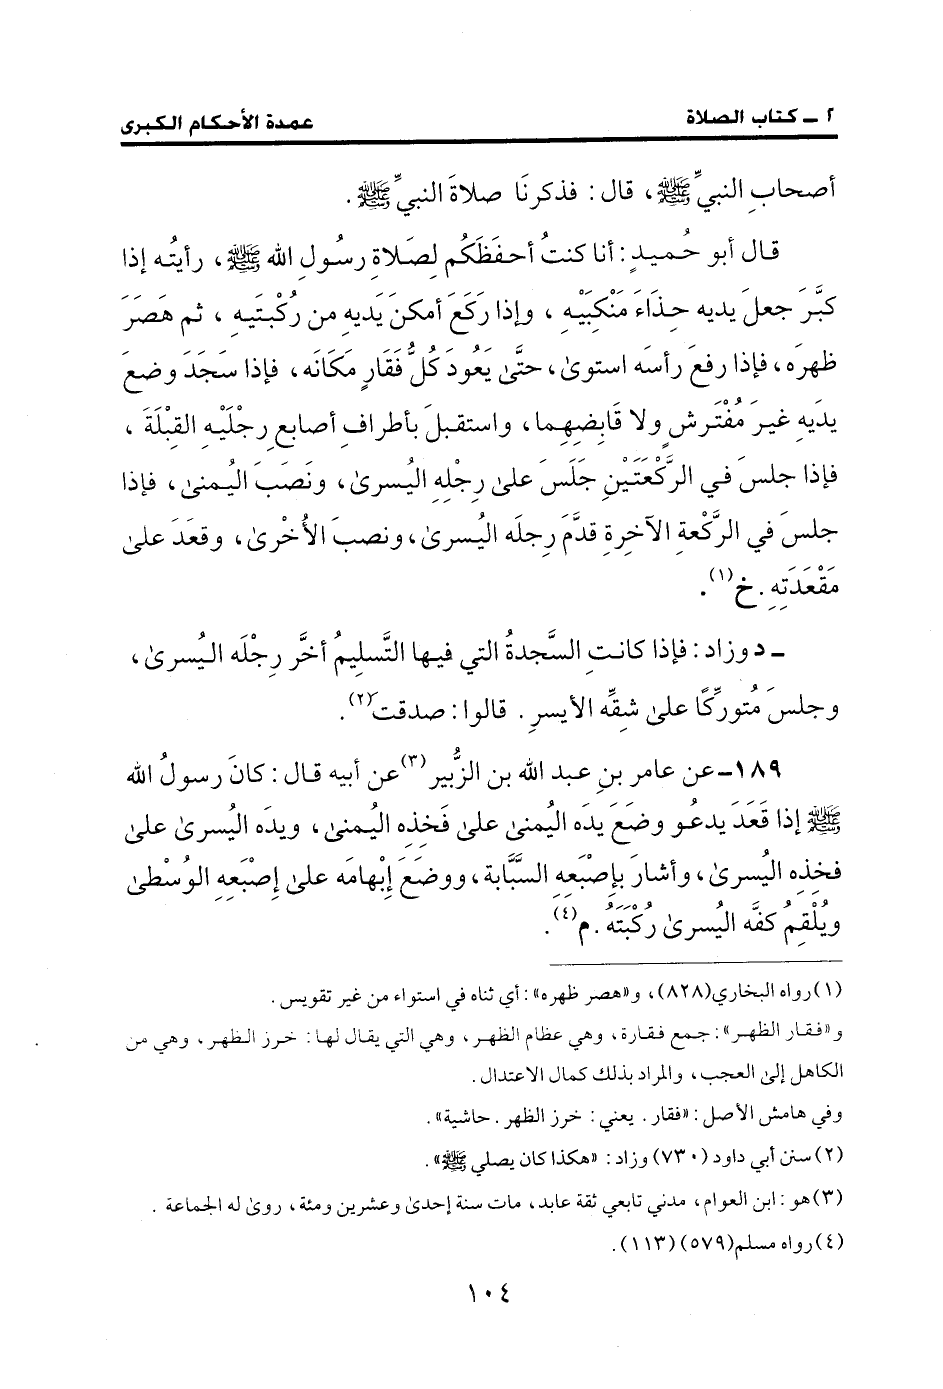 ٢ ـ كتاب الصلاة
عمدة الأحكام الكبرى
أصحابِ النبيِّ ﷺ، قال: فذكرنَا صلاةَ النبيِّ ﷺ.
قال أبو حُميدٍ: أنا كنتُ أحفَظَكُم لِصَلاةِ رسُولِ الله ﷺ، رأيتُه إذا
كبَّرَ جعلَ يديه حِذَاءَ مَنْكِبَيْهِ، وإذا ركَعَ أمكنَ يَديهِ من رُكْبتَيهِ، ثم هَصَرَ
ظهرَه، فإذا رفعَ رأسَه استوىٰ، حتَّىٰ يَعُودَ كُلُّ فَقَارٍ مكَانَه، فإذا سَجَدَ وضعَ
يدَيهِ غيرَ مُفْتَرشٍ ولا قَابِضِهِما، واستقبلَ بأطرافِ أصابعِ رِجلَيْهِ القِبْلَةَ،
فإذا جلسَ في الرَّكْعَتَيْنِ جَلَسَ علىٰ رِجْلِهِ اليُسرىٰ، ونَصَبَ اليُمنىٰ، فإذا
جلسَ في الرَّكْعةِ الآخِرةِ قدَّمَ رِجلَه اليُسرىٰ، ونصبَ الأُخْرىٰ، وقعَدَ علىٰ
مَقْعَدَتِهِ. خ(١).
ـ د وزاد: فإذا كانتِ السَّجدةُ التي فيها التَّسليمُ أخَّر رِجْلَه اليُسرىٰ،
وجلسَ مُتورِّكًا علىٰ شِقِّه الأيسرِ. قالوا: صدقت(٢).
١٨٩ـ عن عامر بنِ عبد الله بن الزُّبير(٣) عن أبيه قال: كانَ رسولُ الله
ﷺ إذا قَعَدَ يدعُو وضَعَ يدَه اليُمنىٰ علىٰ فَخِذِه اليُمنىٰ، ويدَه اليُسرىٰ علىٰ
فخِذِه اليُسرىٰ، وأشارَ بإصْبَعِهِ السَّبَّابة، ووضَعَ إبْهامَه علىٰ إصْبَعِهِ الوُسْطىٰ
ويُلْقِمُ كفَّه اليُسرىٰ رُكْبَتَهُ. م(٤).
(١) رواه البخاري (٨٢٨)، و«هصر ظهره»: أي ثناه في استواء من غير تقويس.
و«فقار الظهر»: جمع فقارة، وهي عظام الظهر، وهي التي يقال لها: خرز الظهر، وهي من
الكاهل إلىٰ العجب، والمراد بذلك كمال الاعتدال.
وفي هامش الأصل: «فقار. يعني: خرز الظهر. حاشية».
(٢) سنن أبي داود (٧٣٠) وزاد: «هكذا كان يصلي ﷺ».
(٣) هو: ابن العوام، مدني تابعي ثقة عابد، مات سنة إحدىٰ وعشرين ومئة، روىٰ له الجماعة.
(٤) رواه مسلم (٥٧٩) (١١٣).
١٠٤